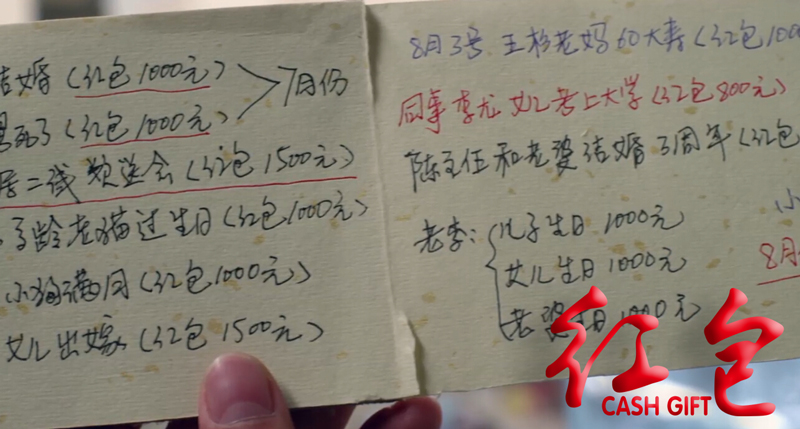 结婚（红包1000元）
死了（红包1000元）
7月份
二线欢送会（红包1500元）
高龄老猫过生日（红包1000元）
小狗满月（红包1000元）
女儿出嫁（红包1500元）
8月3号 王杉老妈60大寿（红包100
同事李龙女儿考上大学（红包800元）
陈主任和老婆结婚3周年（红包
老李：
儿子生日1000元
女儿生日1000元
老婆生日1000元
小
8月
红包
CASH GIFT